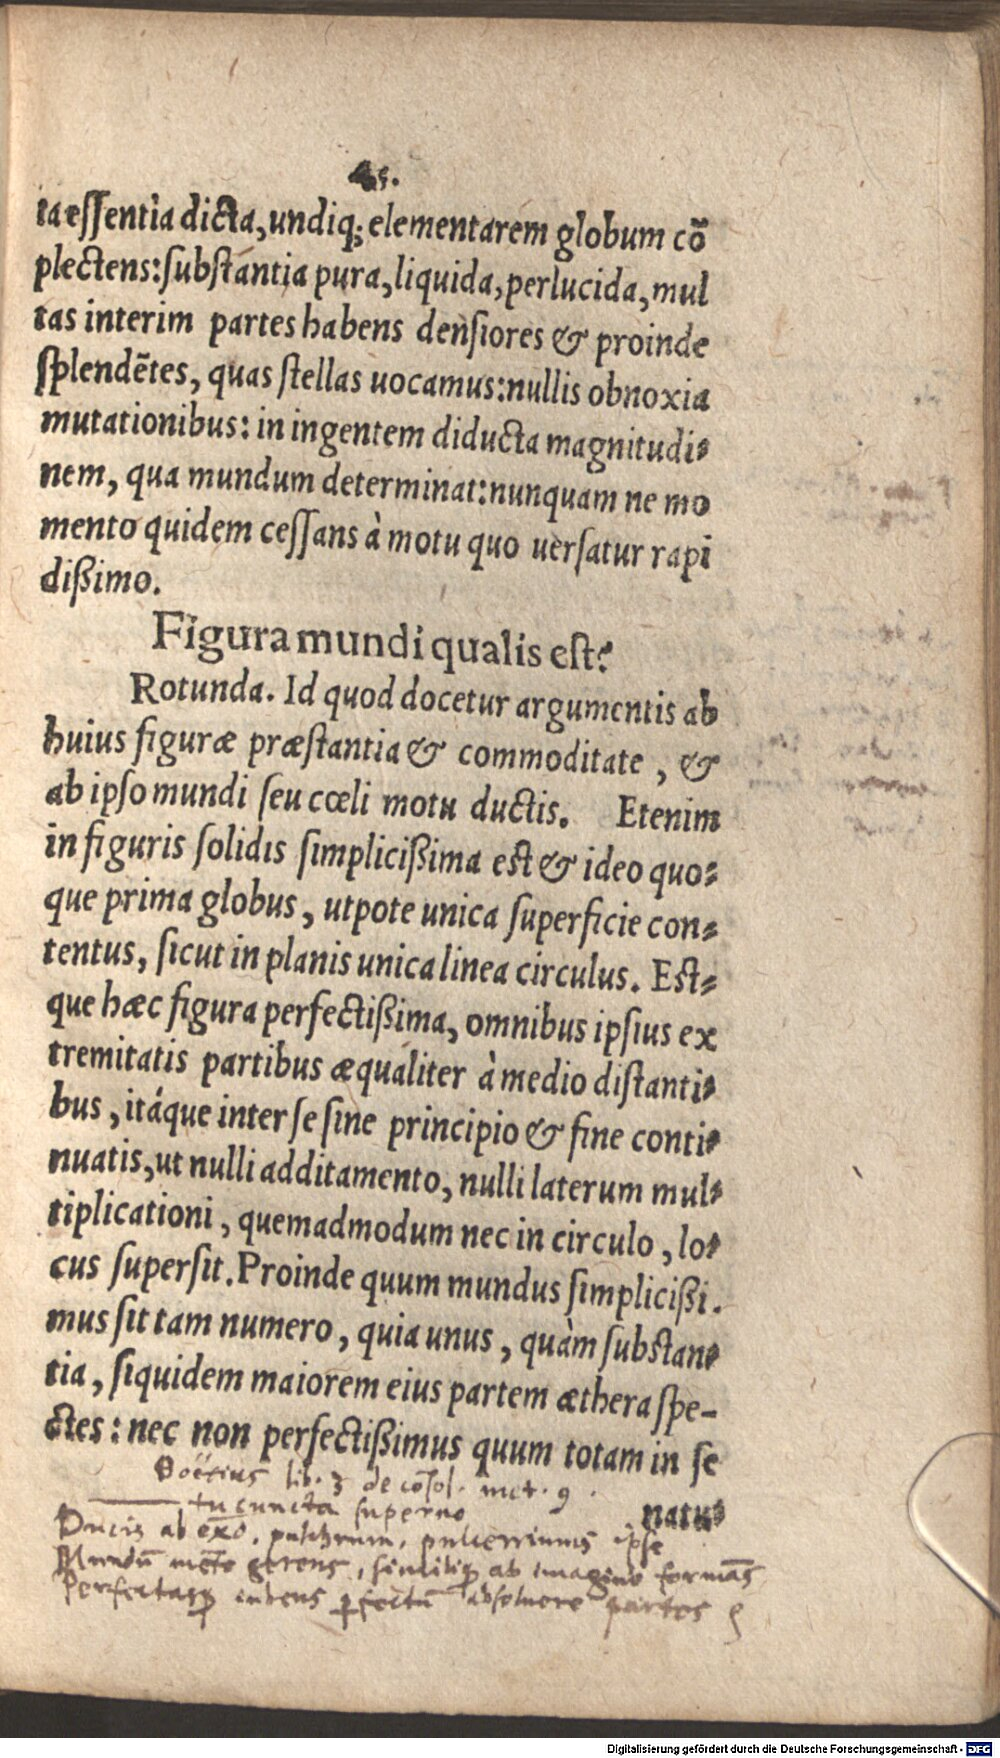 45.
ta essentia dicta, undiq; elementarem globum cõ
plectens: substantia pura, liquida, perlucida, mul
tas interim partes habens densiores & proinde
splendẽtes, quas stellas uocamus: nullis obnoxia
mutationibus: in ingentem diducta magnitudi⸗
nem, qua mundum determinat: nunquam ne mo
mento quidem cessans à motu quo uersatur rapi
dißimo.
Figura mundi qualis est?
Rotunda. Id quod docetur argumentis ab
huius figuræ præstantia & commoditate, &
ab ipso mundi seu cœli motu ductis. Etenim
in figuris solidis simplicißima est & ideo quo⸗
que prima globus, utpote unica superficie con⸗
tentus, sicut in planis unica linea circulus. Est⸗
que hæc figura perfectißima, omnibus ipsius ex
tremitatis partibus æqualiter à medio distanti⸗
bus, itáque inter se sine principio & fine conti⸗
nuatis, ut nulli additamento, nulli laterum mul⸗
tiplicationi, quemadmodum nec in circulo, lo⸗
cus supersit. Proinde quum mundus simplicißi.
mus sit tam numero, quia unus, quàm substan⸗
tia, siquidem maiorem eius partem æthera spe-
ctes: nec non perfectißimus quum totam in se
natu⸗
Boëtius lib. 3 de cõsol. met. 9.
tu cuncta superno
Ducis ab exẽo. pulchrum, pulcerrimus ipse
Mundũ mẽte gerens, similiq; ab imagine formãs
Perfectasq; iubens ꝑfectũ absoluere partes
Digitalisierung gefördert durch die Deutsche Forschungsgemeinschaft - DFG